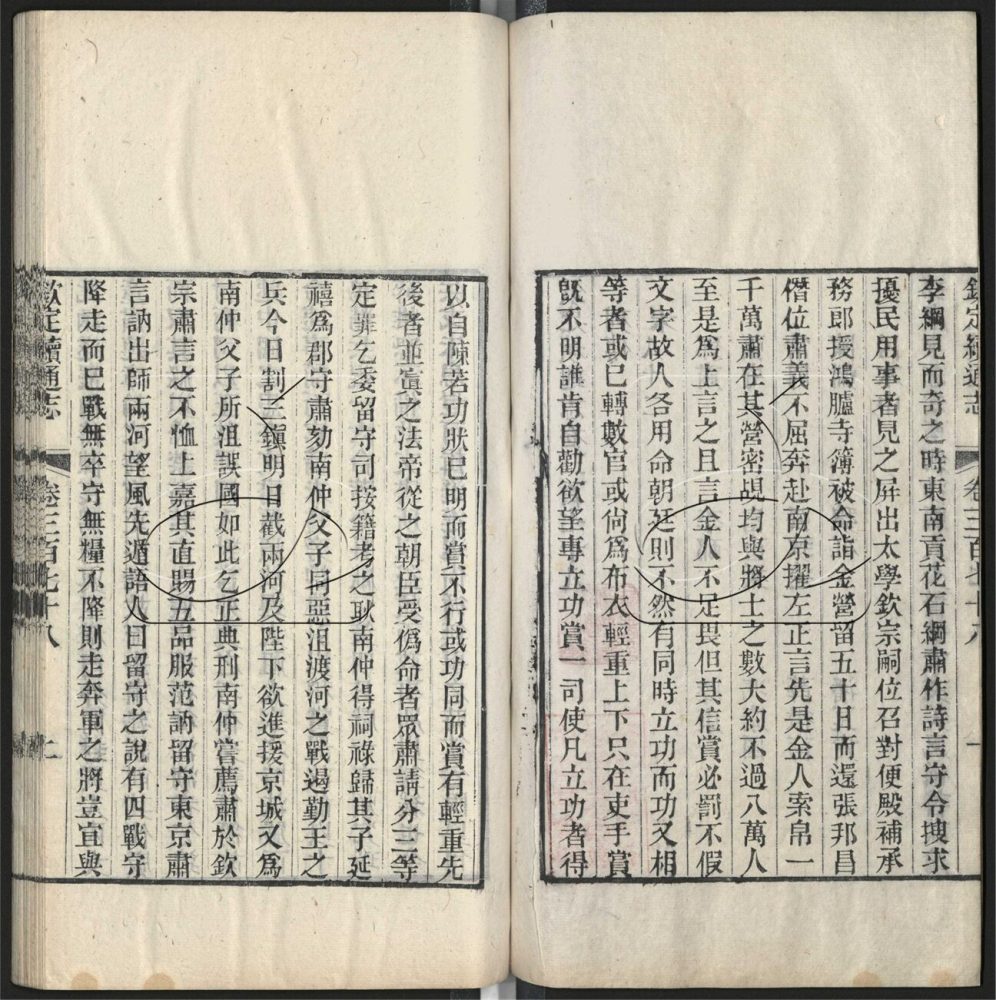 欽定續通志 卷三百七十八 一
李綱見而奇之時東南貢花石綱肅作詩言守令搜求
擾民用事者見之屏出太學欽宗嗣位召對便殿補承
務郎授鴻臚寺簿被命詣金營留五十日而還張邦昌
僭位肅義不屈奔赴南京擢左正言先是金人索帛一
千萬肅在其營密覘均與將士之數大約不過八萬人
至是爲上言之且言金人不足畏但其信賞必罰不假
文字故人各用命朝廷則不然有同時立功而功又相
等者或已轉數官或尚爲布衣輕重上下只在吏手賞
旣不明誰肯自勸欲望專立功賞一司使凡立功者得
以自陳若功狀已明而賞不行或功同而賞有輕重先
後者並寘之法帝從之朝臣受僞命者眾肅請分三等
定罪乞委留守司按籍考之耿南仲得祠祿歸其子延
禧爲郡守肅劾南仲父子同惡沮渡河之戰遏勤王之
兵今日割三鎮明日截兩河及陛下欲進援京城又爲
南仲父子所沮誤國如此乞正典刑南仲嘗薦肅於欽
宗肅言之不恤上嘉其直賜五品服范訥留守東京肅
言訥出師兩河望風先遁語人曰留守之說有四戰守
降走而已戰無卒守無糧不降則走奔軍之將豈宜與
欽定續通志 卷三百七十八 上